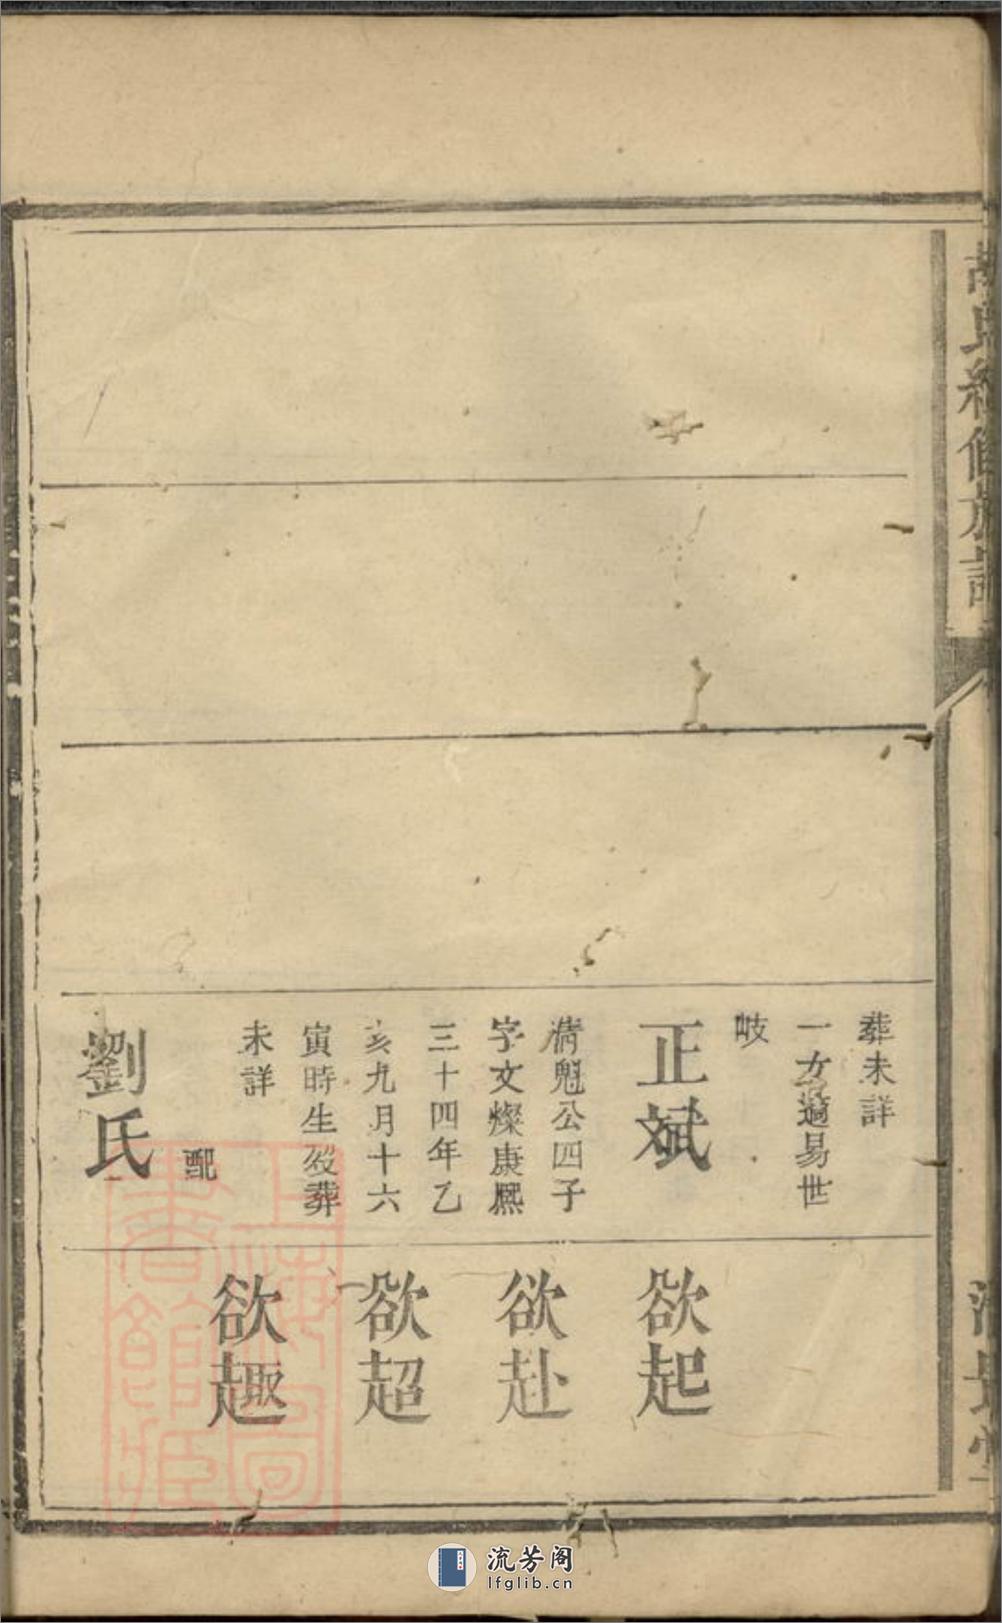 葬未詳
一女適易世
岐
正斌
清魁公四子
字文燦康熙
三十四年乙
亥九月十六
寅時生歿葬
未詳
配
劉氏
欲起
欲赴
欲超
欲趣
上海圖
書館藏
流芳阁
lfglib.cn